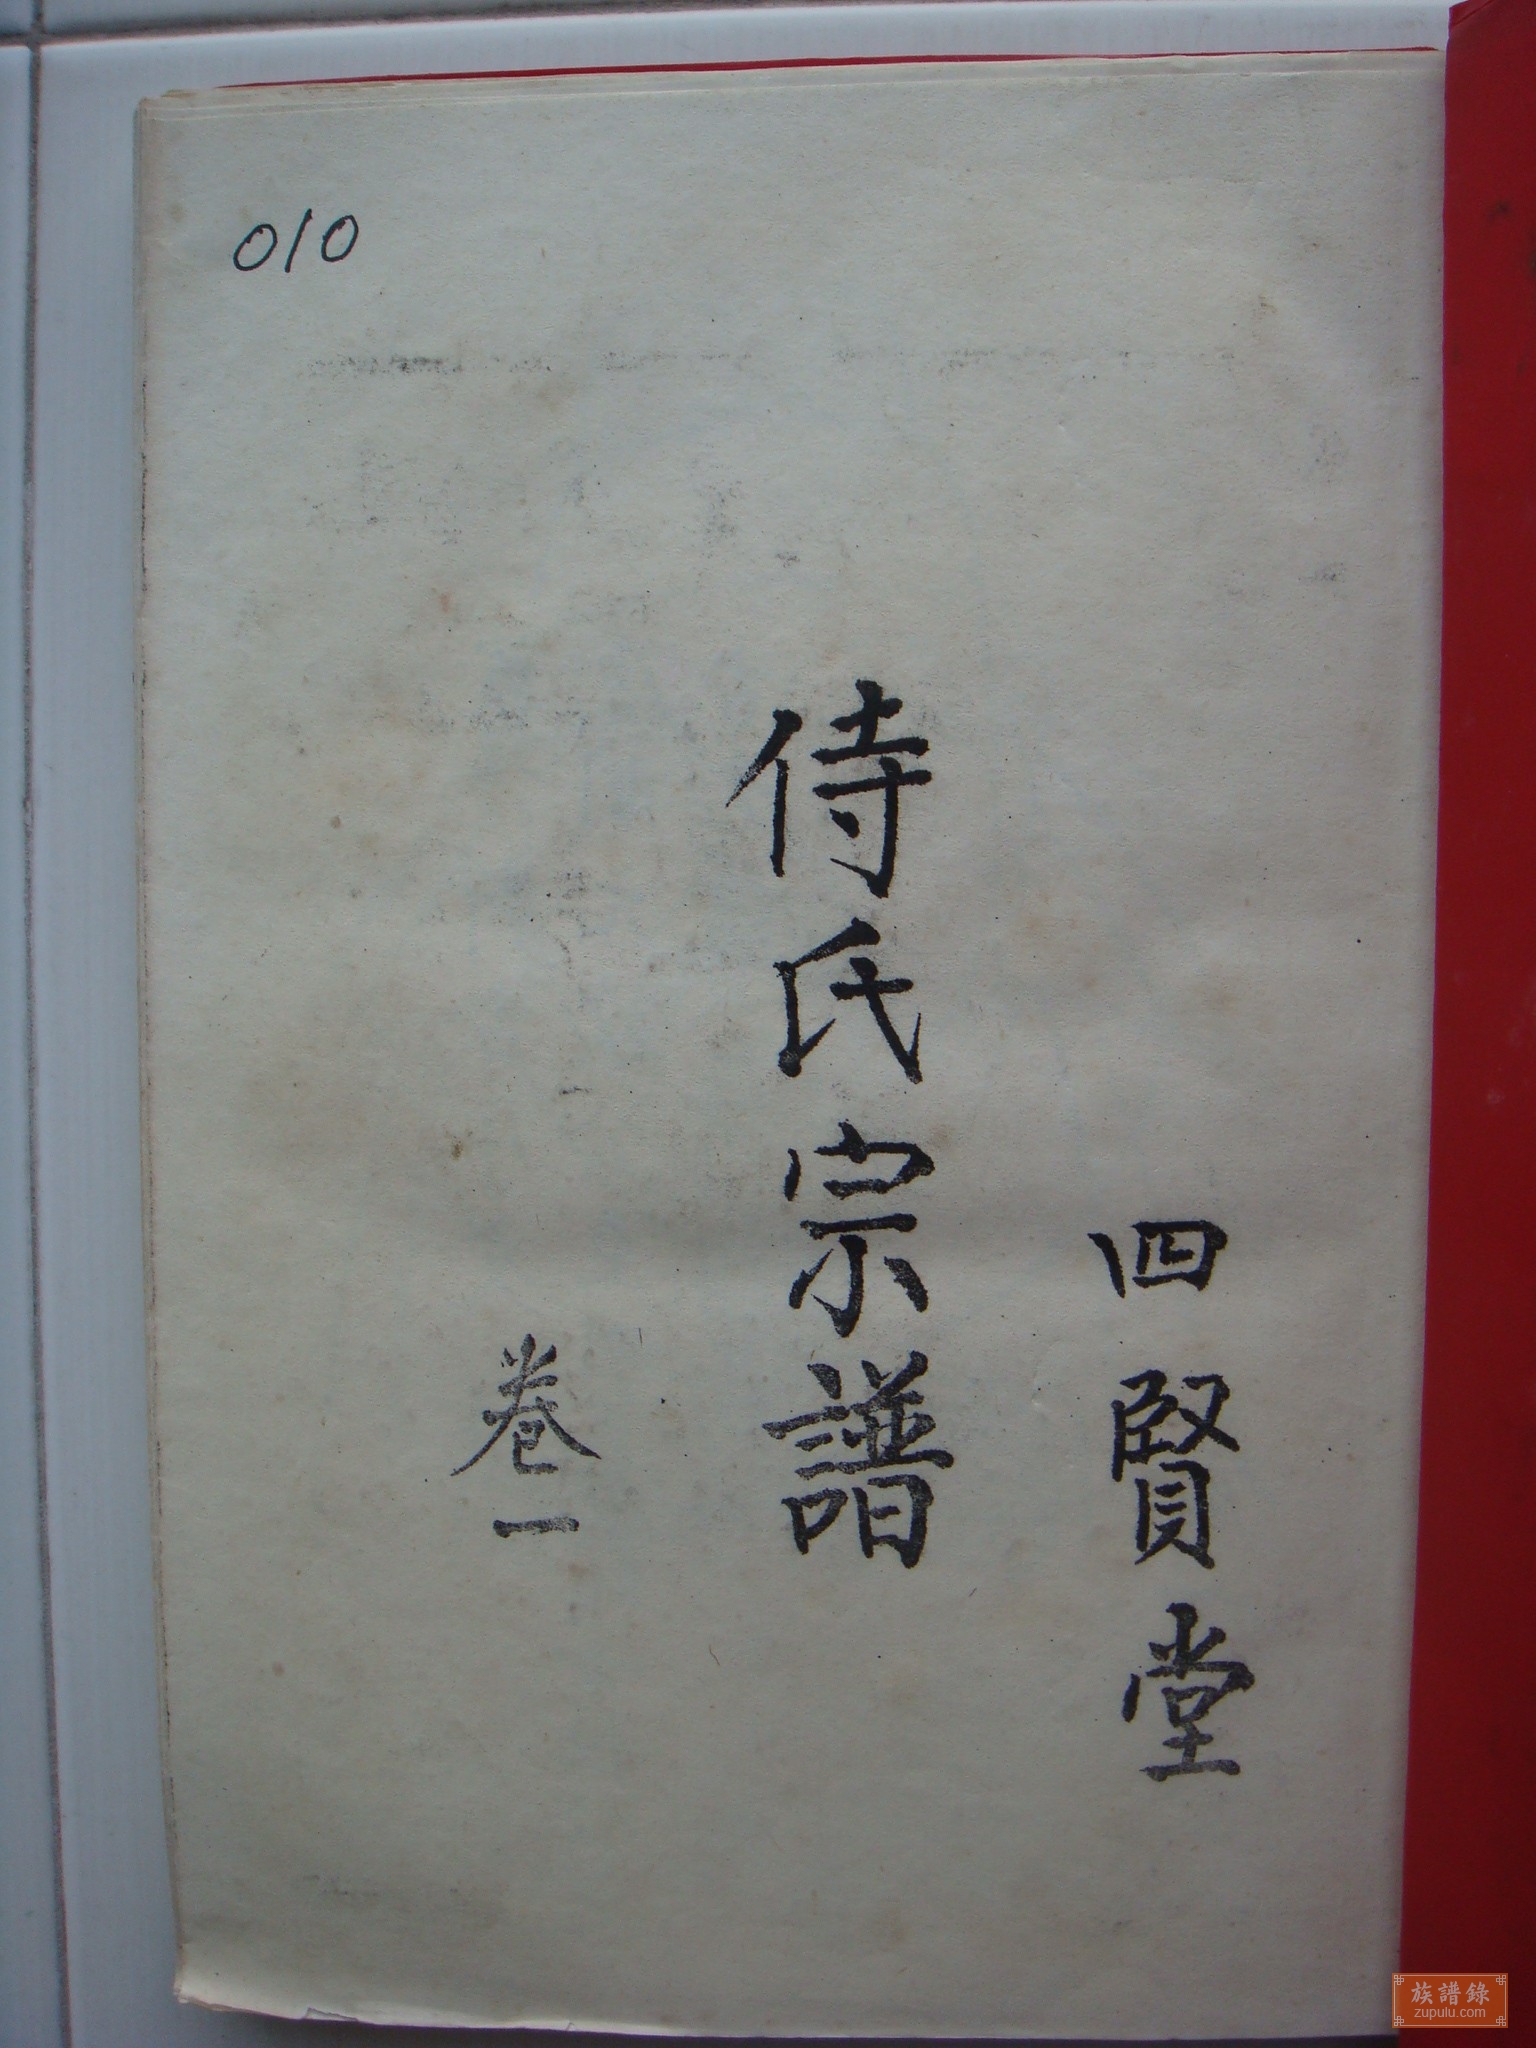 010
四賢堂
侍氏宗譜
卷一
族譜錄
zupulu.com